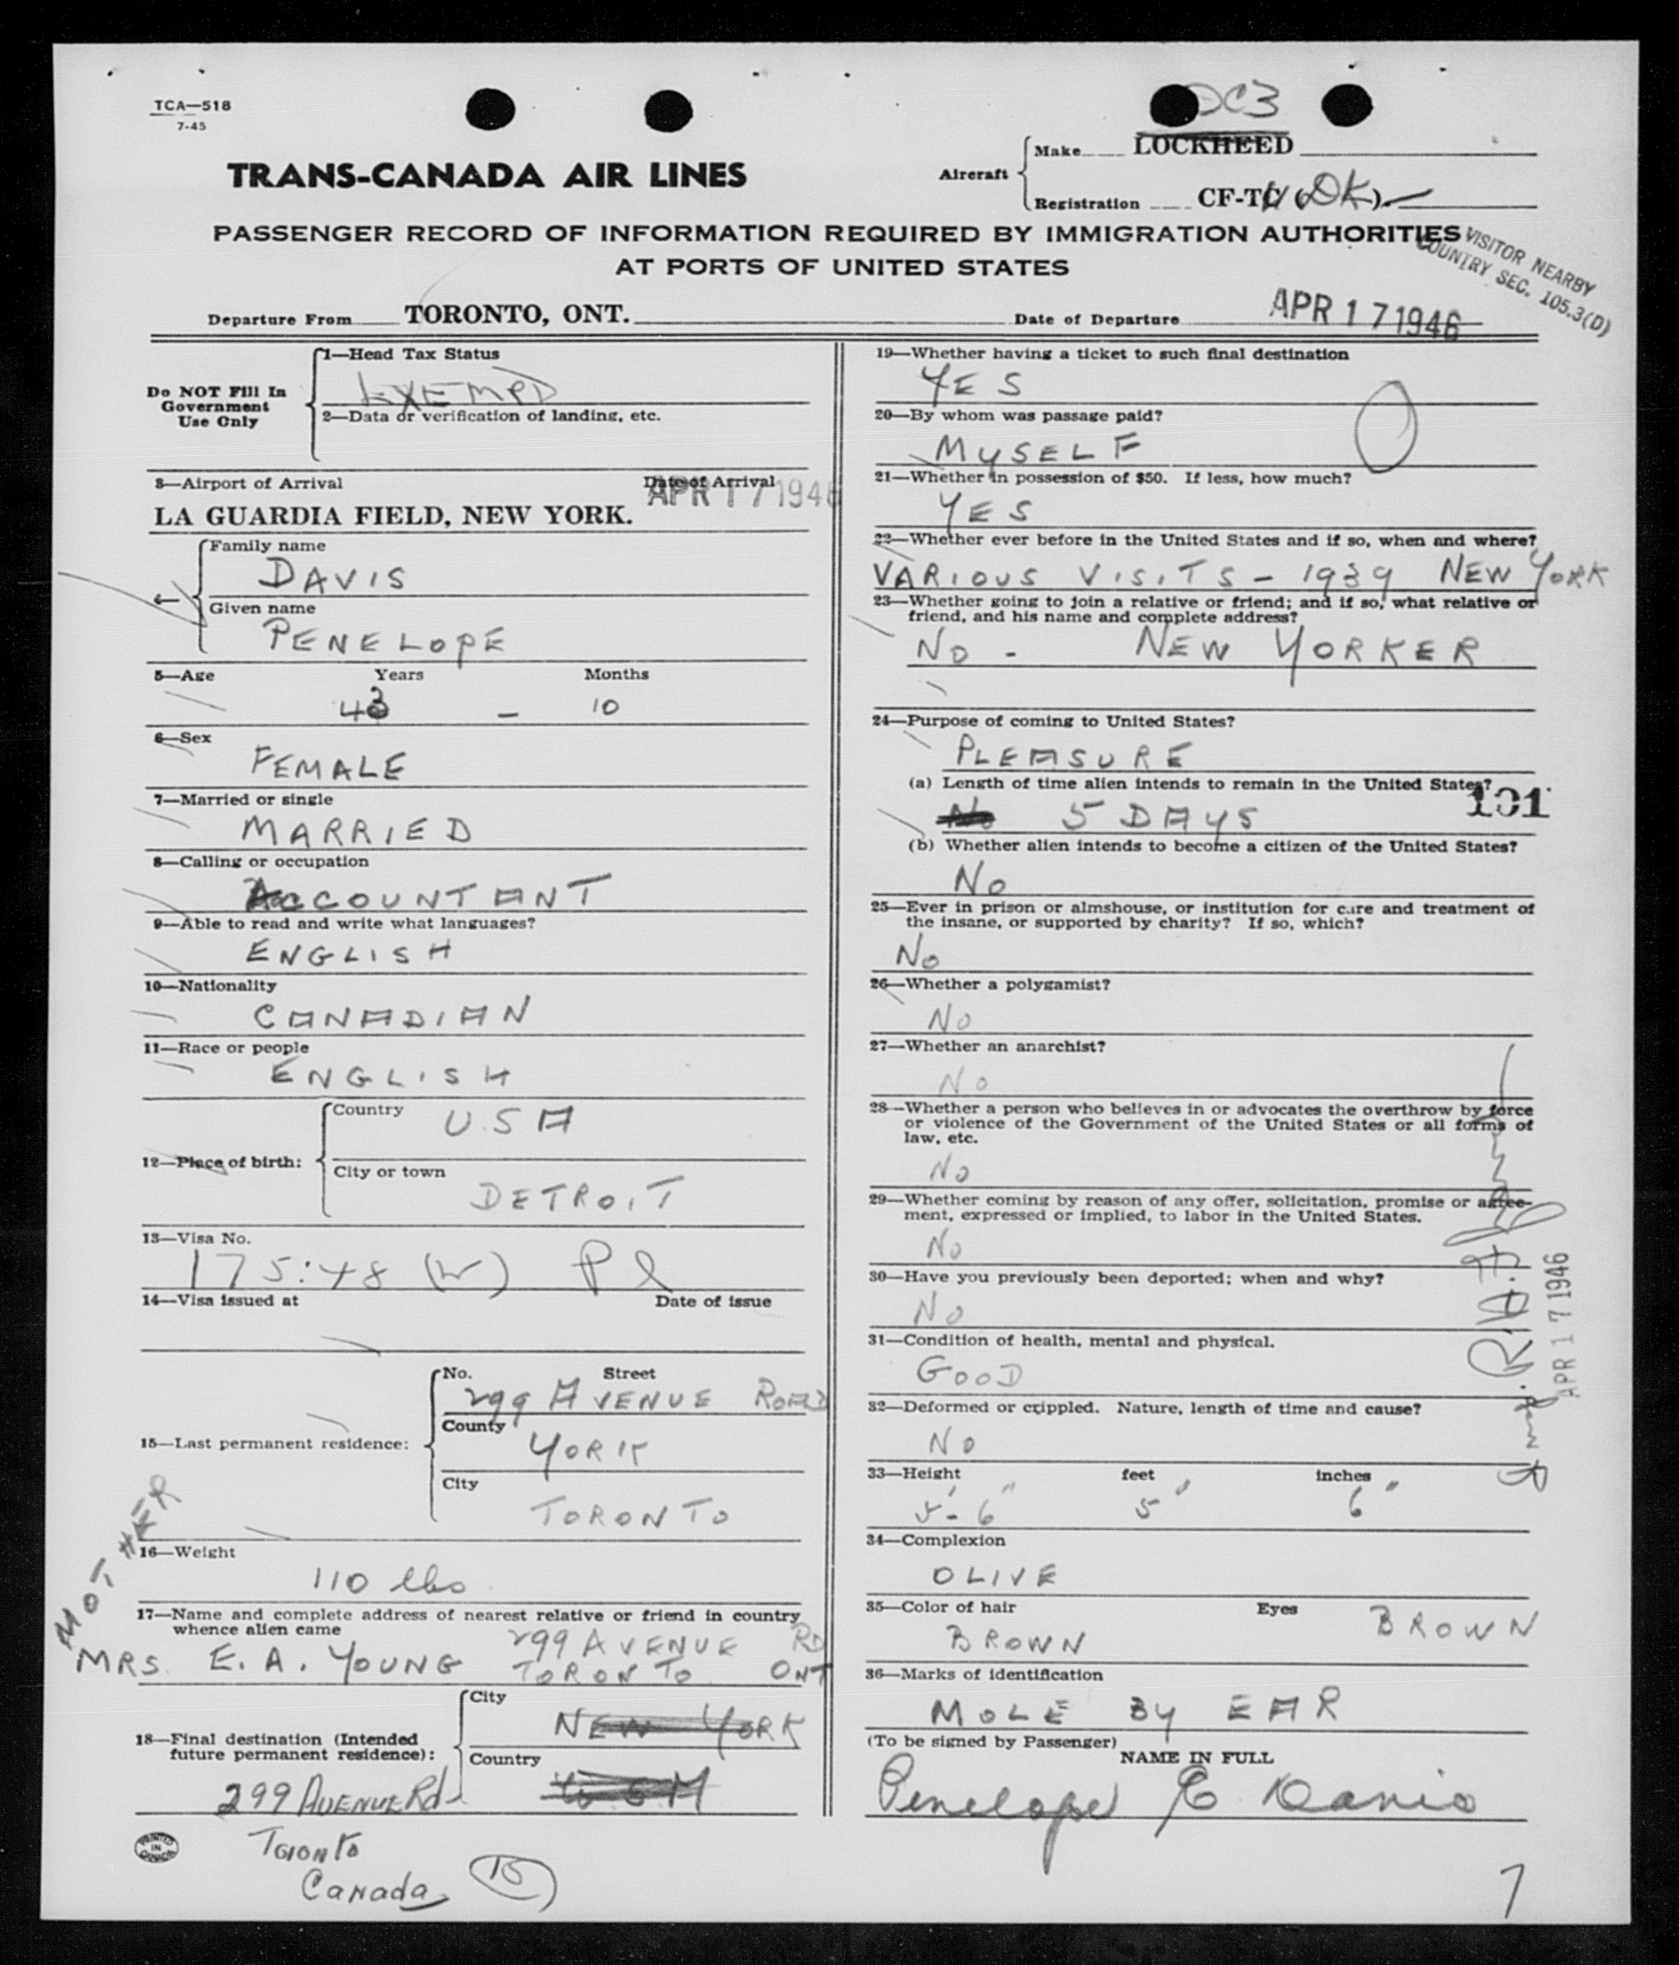 TCA—518
7-45
DC3
TRANS-CANADA AIR LINES
Aircraft
Make LOCKHEED
Registration CF-TC (DK).
PASSENGER RECORD OF INFORMATION REQUIRED BY IMMIGRATION AUTHORITIES
AT PORTS OF UNITED STATES
VISITOR NEARBY
COUNTRY SEC. 105.3(D)
Departure From TORONTO, ONT.
Date of Departure APR 17 1946
Do NOT Fill In
Government
Use Only
1—Head Tax Status
EXEMPD
2—Data or verification of landing, etc.
3—Airport of Arrival Date of Arrival
LA GUARDIA FIELD, NEW YORK. APR 17 1946
4—
Family name
DAVIS
Given name
PENELOPE
5—Age Years Months
43 – 10
6—Sex
FEMALE
7—Married or single
MARRIED
8—Calling or occupation
ACCOUNTANT
9—Able to read and write what languages?
ENGLISH
10—Nationality
CANADIAN
11—Race or people
ENGLISH
12—Place of birth:
Country USA
City or town
DETROIT
13—Visa No.
175:48 (W) Pl
14—Visa issued at Date of issue
15—Last permanent residence:
No. Street
299 AVENUE ROAD
County
YORK
City
TORONTO
16—Weight
110 lbs
17—Name and complete address of nearest relative or friend in country
whence alien came
MOTHER
MRS. E. A. YOUNG 299 AVENUE RD
TORONTO ONT
18—Final destination (Intended
future permanent residence):
City
NEW YORK
Country
299 AVENUE Rd
Toronto
Canada
15
PRINTED
IN
CANADA
19—Whether having a ticket to such final destination
YES
20—By whom was passage paid?
MYSELF
0
21—Whether in possession of $50. If less, how much?
YES
22—Whether ever before in the United States and if so, when and where?
VARIOUS VISITS – 1939 NEW YORK
23—Whether going to join a relative or friend; and if so, what relative or
friend, and his name and complete address?
NO – NEW YORKER
24—Purpose of coming to United States?
PLEASURE
(a) Length of time alien intends to remain in the United States?
No 5 DAYS
101
(b) Whether alien intends to become a citizen of the United States?
No
25—Ever in prison or almshouse, or institution for care and treatment of
the insane, or supported by charity? If so, which?
No
26—Whether a polygamist?
No
27—Whether an anarchist?
No
28—Whether a person who believes in or advocates the overthrow by force
or violence of the Government of the United States or all forms of
law, etc.
No
29—Whether coming by reason of any offer, solicitation, promise or agree-
ment, expressed or implied, to labor in the United States.
No
30—Have you previously been deported; when and why?
No
31—Condition of health, mental and physical.
GOOD
APR 17 1946
32—Deformed or crippled. Nature, length of time and cause?
No
33—Height feet inches
5'-6" 5' 6"
34—Complexion
OLIVE
35—Color of hair Eyes
BROWN BROWN
36—Marks of identification
MOLE BY EAR
(To be signed by Passenger)
NAME IN FULL
Penelope E Davis
7